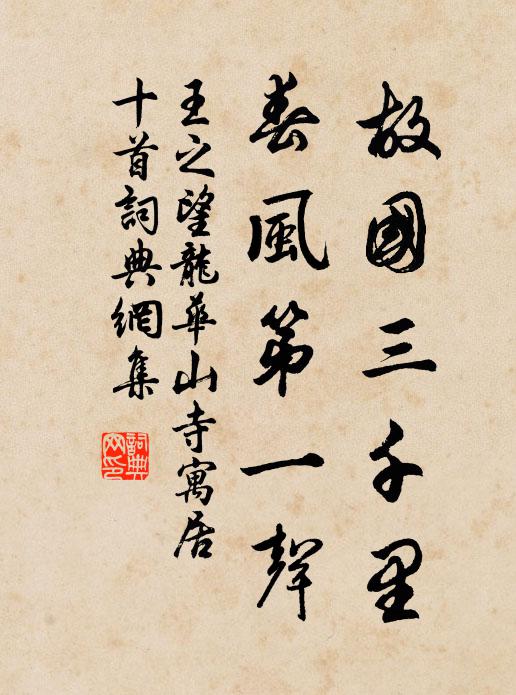 故國三千里
春風第一聲
王之望龍華山寺寓居
十首詞典網集
詞典
网印